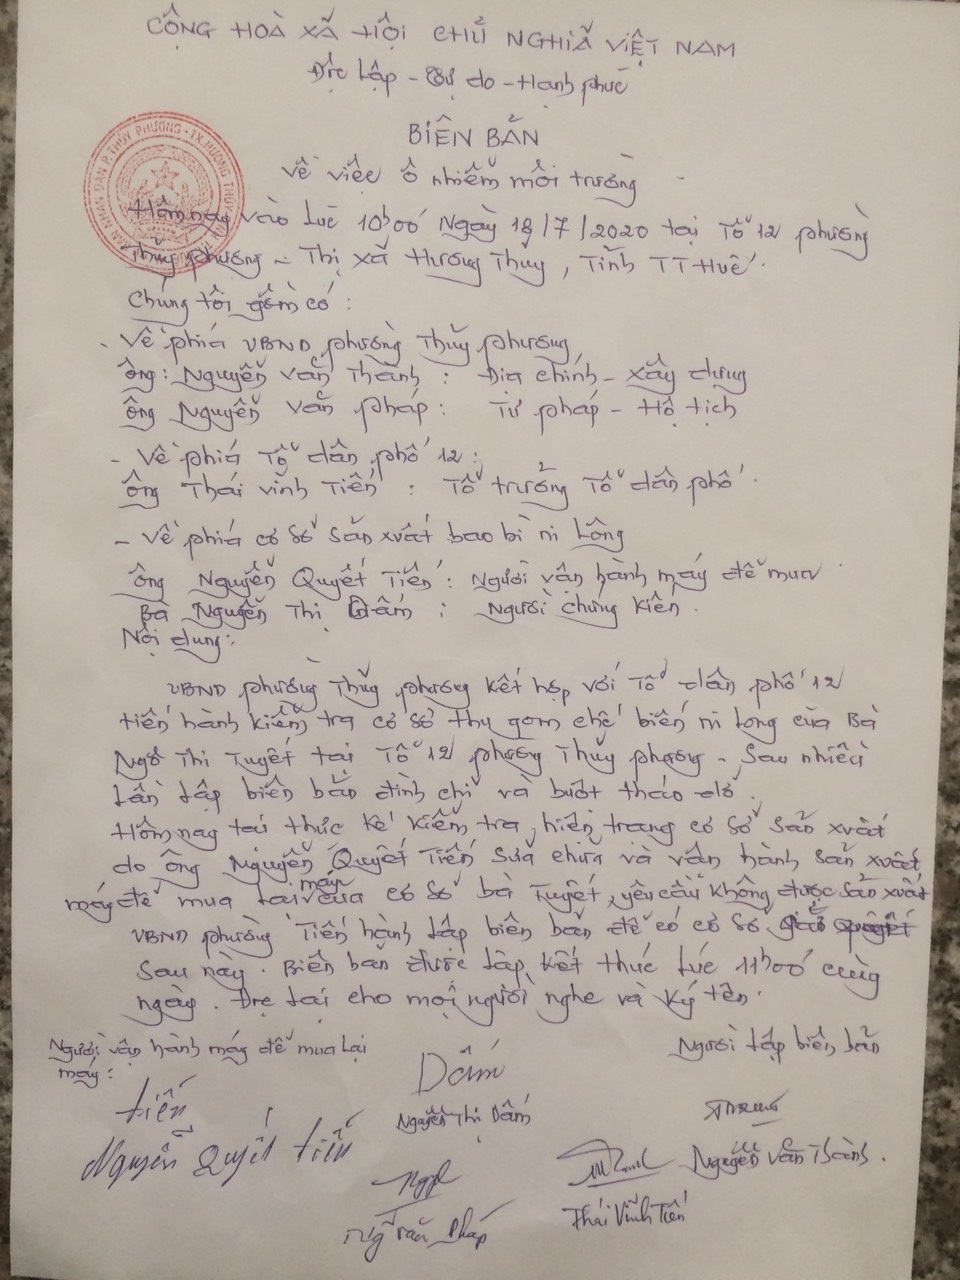 CỘNG HOÀ XÃ HỘI CHỦ NGHĨA VIỆT NAM
Độc lập - Tự do - Hạnh phúc
BIÊN BẢN
Về việc ô nhiễm môi trường
Hôm nay vào lúc 10h00 Ngày 18/7/2020 tại Tổ 12 phường
Thủy phương - Thị xã Hương Thủy, Tỉnh TT Huế.
Chúng tôi gồm có:
- Về phía UBND phường Thủy phương
Ông: Nguyễn Văn Thành: Địa chính - Xây dựng
Ông Nguyễn Văn Pháp: Tư pháp - Hộ tịch
- Về phía Tổ dân phố 12:
Ông Thái Vinh Tiến: Tổ trưởng Tổ dân phố.
- Về phía cơ sở sản xuất bao bì ni Lông
Ông Nguyễn Quyết Tiến: Người vận hành máy để mua
Bà Nguyễn Thị Dấm: Người chứng kiến.
Nội dung:
UBND phường Thủy phương kết hợp với Tổ dân phố 12
tiến hành kiểm tra cơ sở thu gom chế biến ni Long của Bà
Ngô Thị Tuyết tại Tổ 12 phường Thủy phương - Sau nhiều
Lần Lập biên bản đình chỉ và buột tháo dở.
Hôm nay tại thực kế kiểm tra, hiện trạng cơ sở sản xuất
do ông Nguyễn Quyết Tiến sửa chữa và vận hành sản xuất
máy để mua Lại máy của cơ sở bà Tuyết, yêu cầu không được sản xuất
UBND phường Tiến hành Lập biên bản để có cơ sở giải quyết
Sau này. Biên bản được Lập, kết thúc Lúc 11h00 cùng
ngày. Đọc Lại cho mọi người nghe và ký tên.
Người vận hành máy để mua Lại
máy:
Người Lập biên bản
Dấm
Tiến
Nguyễn Thị Dấm
Nguyễn Quyết Tiến
Nguyễn Văn Thành.
Thái Vĩnh Tiến
Ng Văn Pháp
ỦY BAN NHÂN DÂN P. THỦY PHƯƠNG - TX. HƯƠNG THỦY